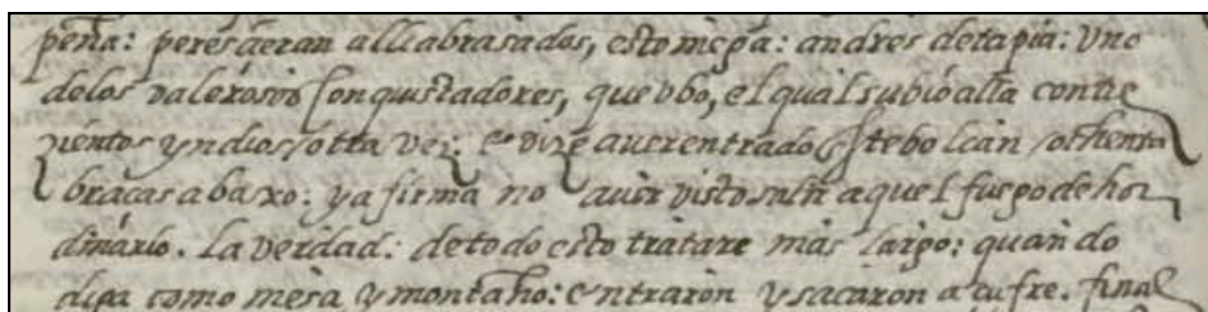 peña: peresçieran alli abrasados, esto mepa: andres detapia: Vno
delos valerosos Conquistadores, que vbo, el qual subió alla contre
zientos yndios/ ótta vez: e dize auerentrado Este bolcan/ othenta
braças abaxo: y afirma no auer visto mĩn aquel fuego de hor
dinário. La verdad: detodo esto tratare mas largo: quando
diga como mesa y montaño: entraron y sacaron açufre. final